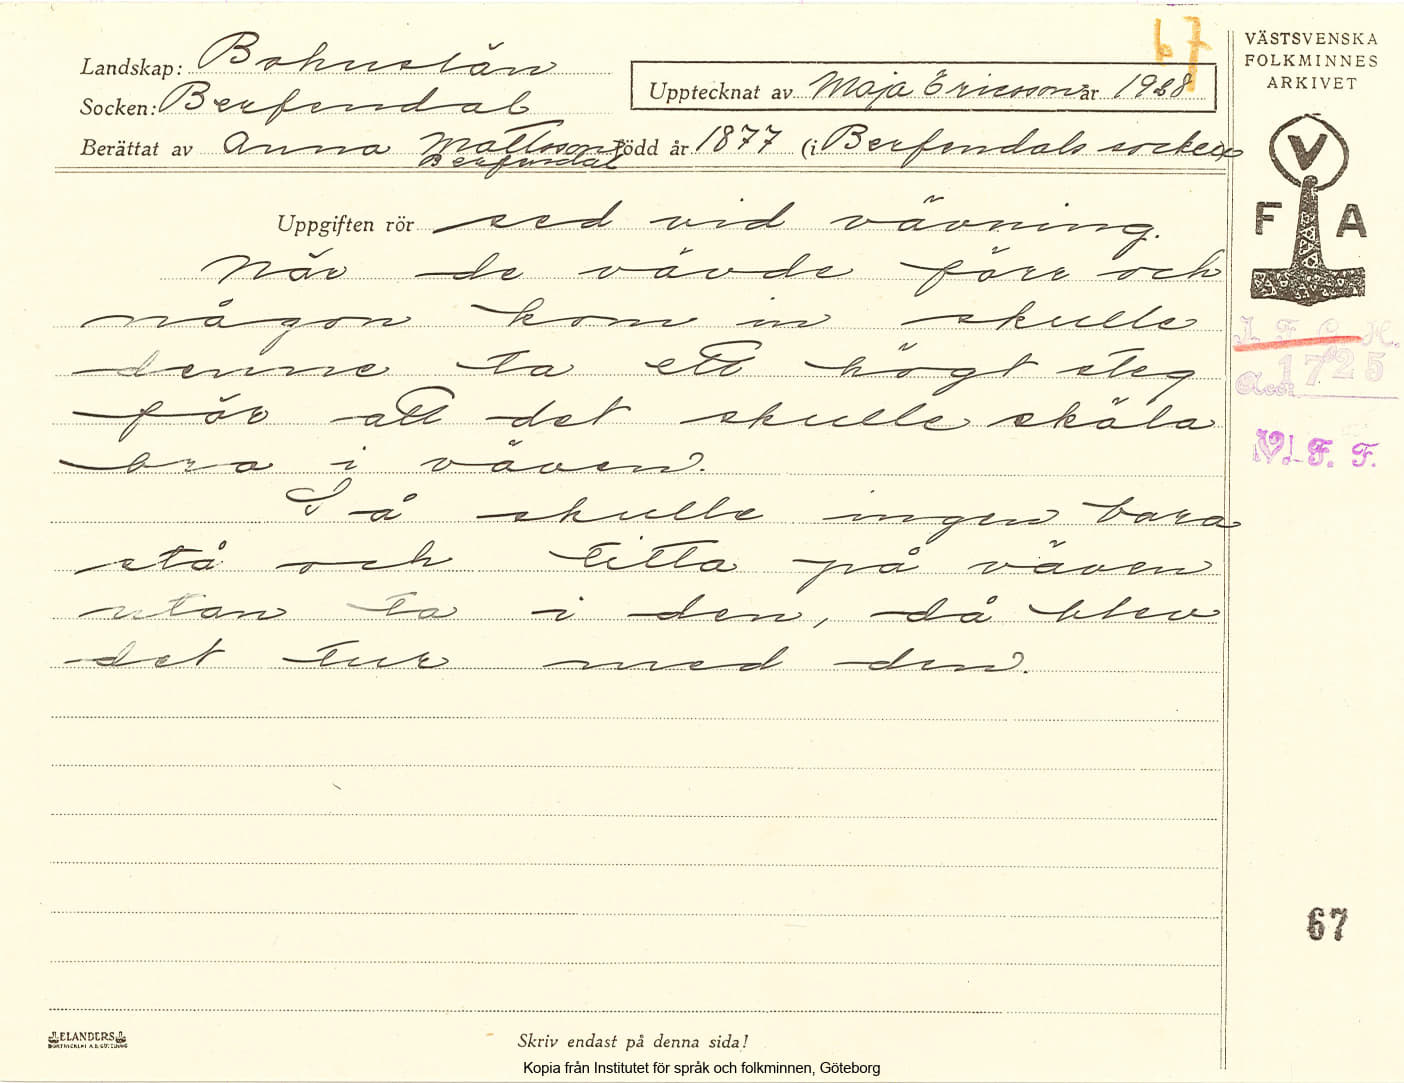 Landskap: Bohuslän
Socken: Berfendal
Upptecknat av Maja Ericsson år 1928
Berättat av Anna Mattsson född år 1877 (i Berfendals socken
Berfendal
67
Uppgiften rör sed vid vävning.
När de vävde förr och
någon kom in skulle
denne ta ett högt steg
för att det skulle skäla
bra i väven.
Så skulle ingen bara
stå och titta på väven
utan ta i den, då blev
det tur med den.
VÄSTSVENSKA
FOLKMINNES
ARKIVET
V
F A
I. F. G. H.
Acc. 1725
V. F. F.
67
ELANDERS
Skriv endast på denna sida!
Kopia från Institutet för språk och folkminnen, Göteborg